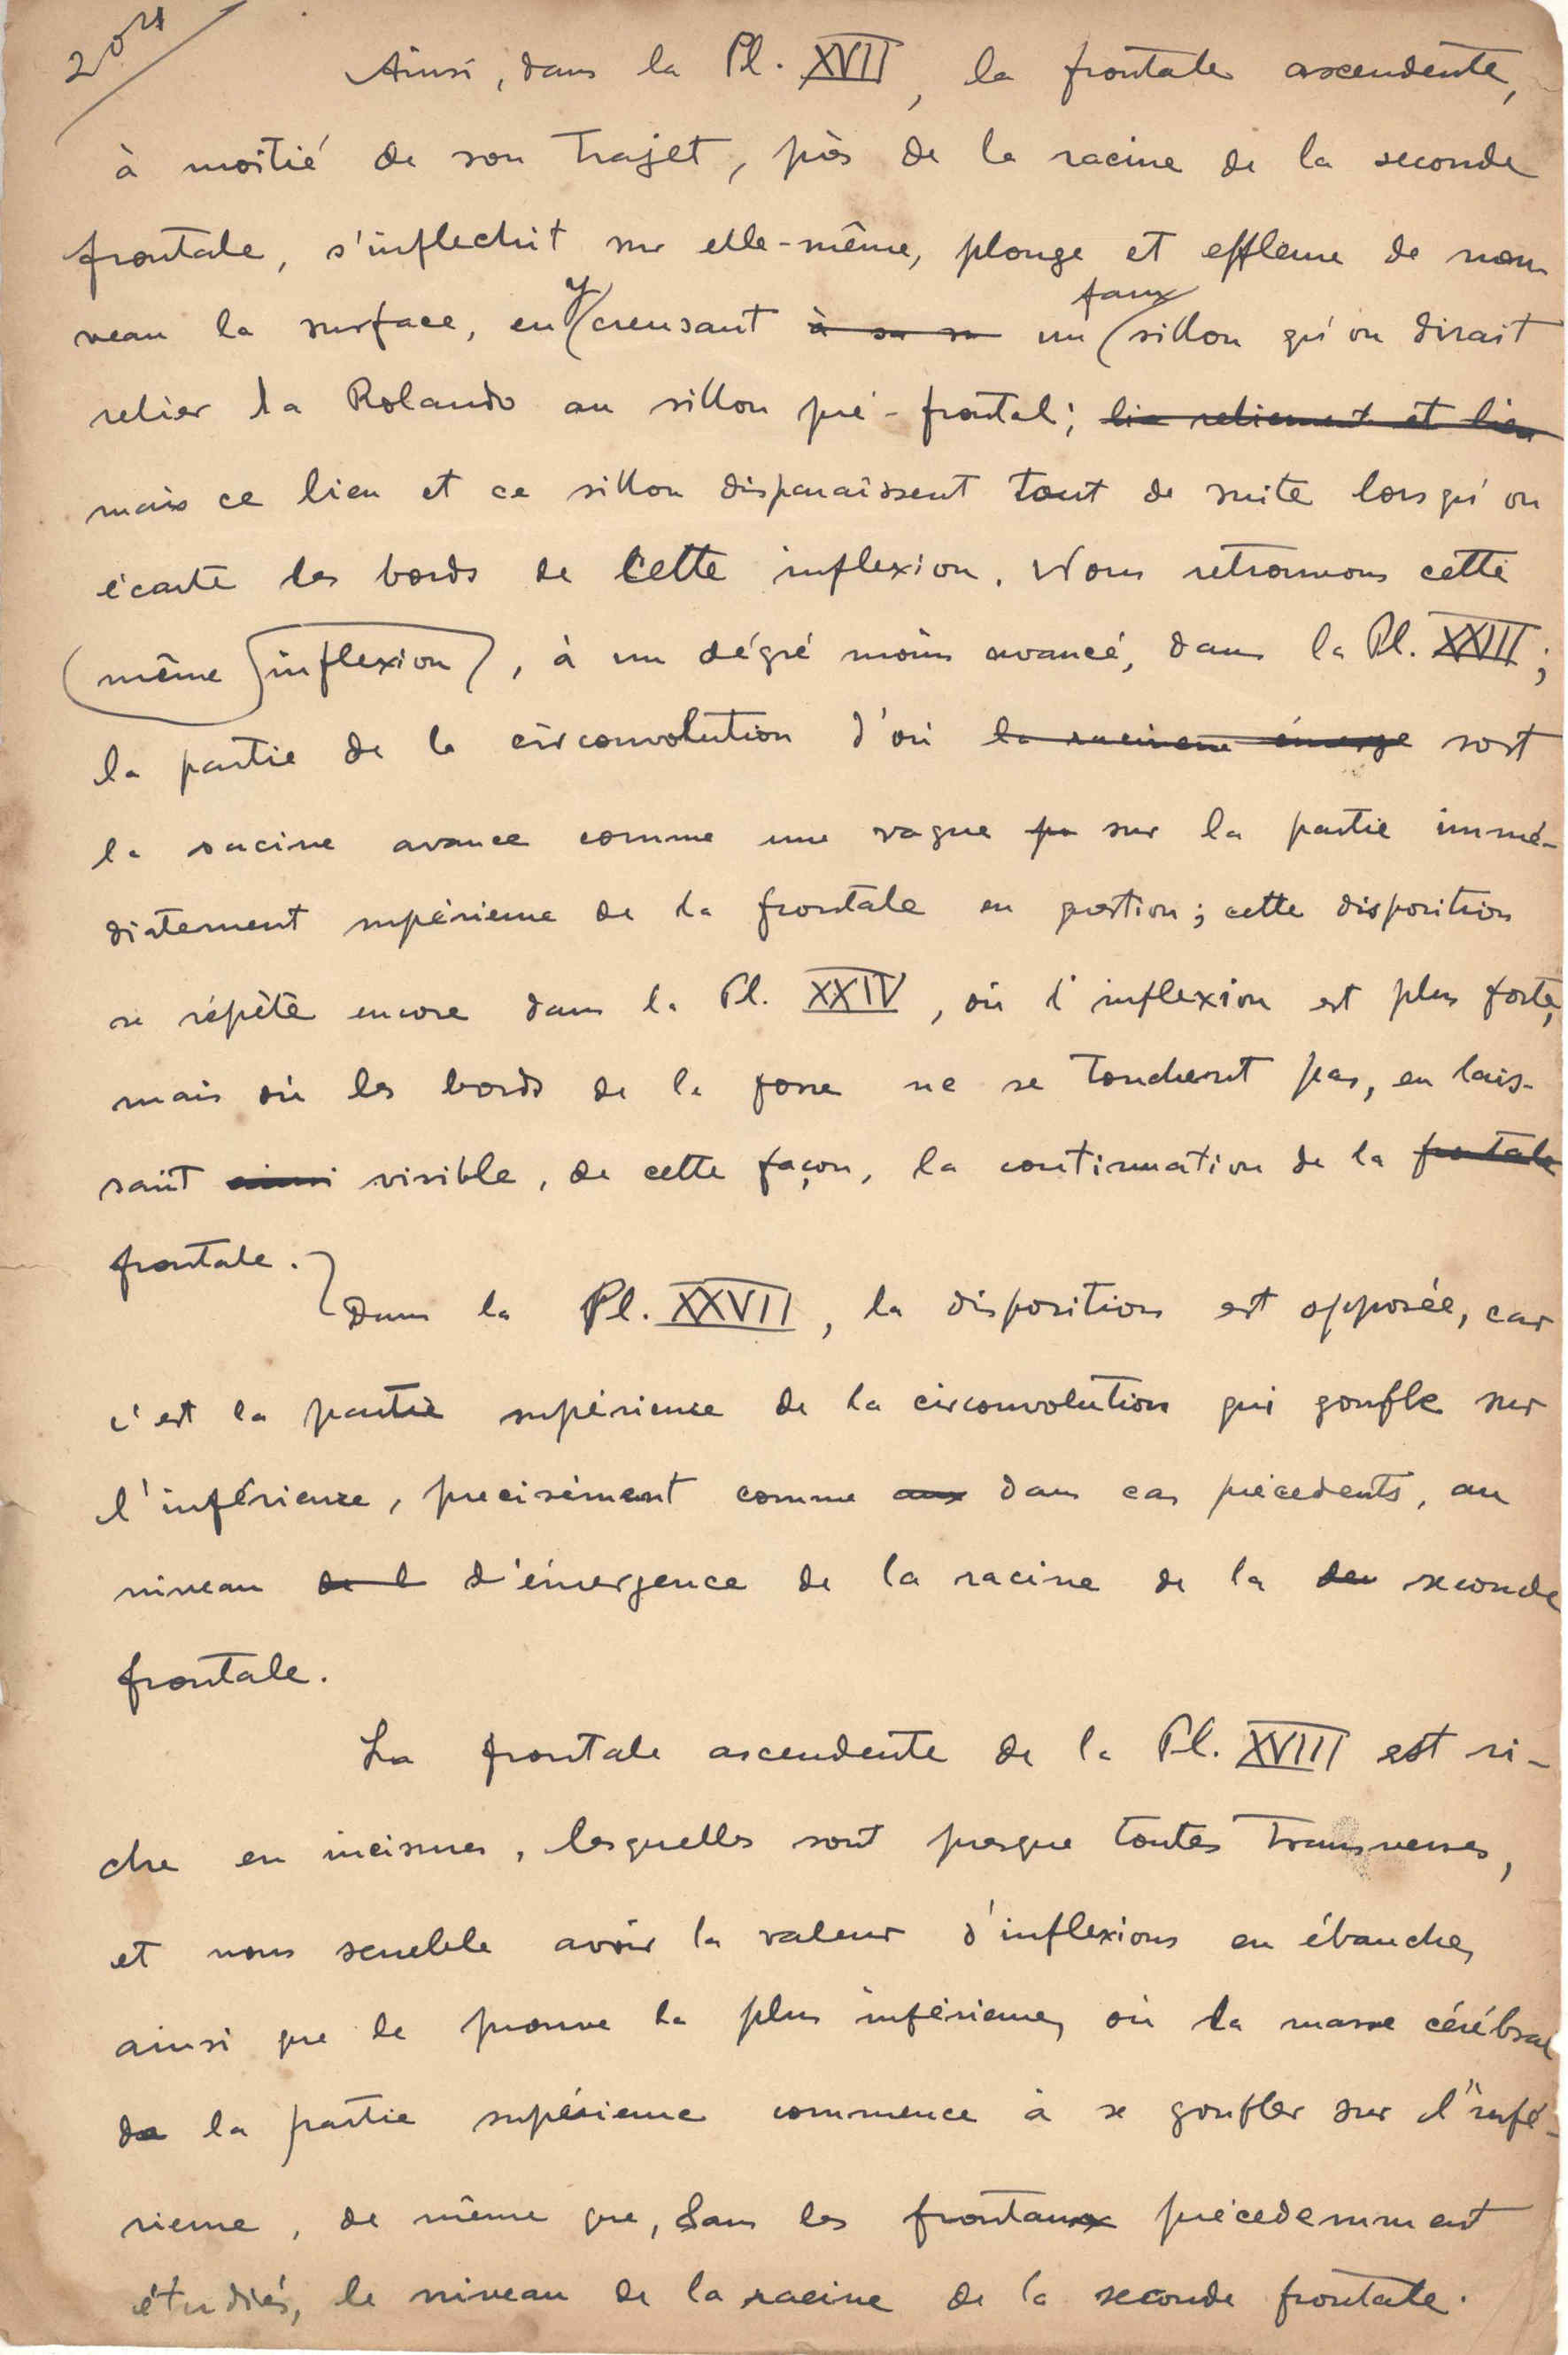 20
Ainsi, dans la Pl. XVII, la frontale ascendente,
à moitié de son trajet, près de la racine de la seconde
frontale, s'inflechit sur elle-même, plonge et effleure de nou
veau la surface, en y creusant à sa su un faux sillon qu'on dirait
relier la Rolando au sillon pré-frontal; lie reliement et lien
mais ce lien et ce sillon disparaîssent tout de suite lorsqu'on
écarte les bords de cette inflexion. Nous retrouvons cette
même inflexion, à un dégré moins avancé, dans la Pl. XXIII;
la partie de la circonvolution d'où la racine émerge sort
la racine avance comme une vague sur la partie immé-
diatement supérieure de la frontale en question; cette disposition
se répète encore dans la Pl. XXIV, où l'inflexion est plus forte,
mais où les bords de la fosse ne se touchent pas, en lais-
sant ainsi visible, de cette façon, la continuation de la frontale
frontale.
Dans la Pl. XXVII, la disposition est opposée, car
c'est la partie supérieure de la circonvolution qui gonfle sur
l'inférieure, precisément comme aux dans cas précedents, au
niveau de l d'émergence de la racine de la de seconde
frontale.
La frontale ascendente de la Pl. XVIII est ri-
che en incisures, lesquelles sont presque toutes transverses,
et nous semble avoir la valeur d'inflexions en ébauche,
ainsi que le prouve la plus inférieure, où la masse cérébral
de la partie supérieure commence à se gonfler sur l'infé-
rieure, de même que, dans les frontaux précedemment
étudiés, le niveau de la racine de la seconde frontale.